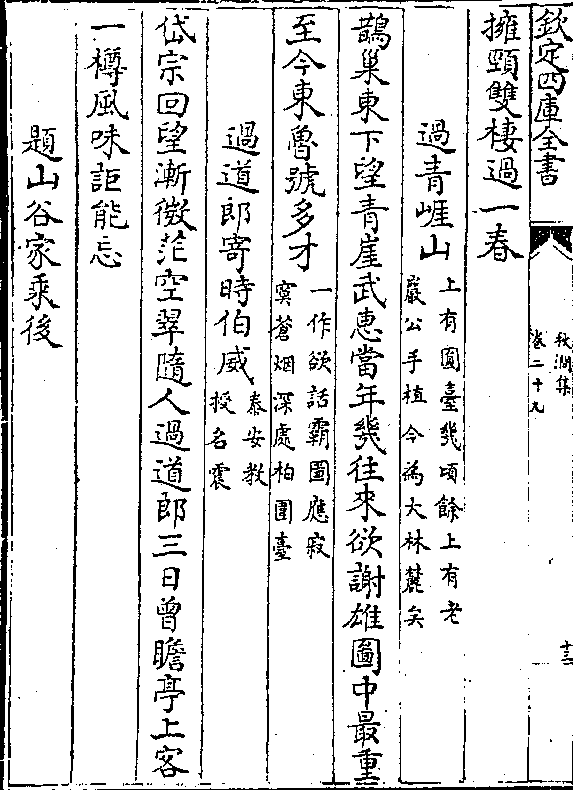 欽定四庫全書
秋澗集
卷二十九
十三
擁頸雙棲過一春
過青崕山
上有圓臺幾頃餘上有老
嚴公手植今為大林麓矣
鵲巢東下望青崖武惠當年幾往來欲謝雄圖中最重
至今東魯號多才
一作欲話霸圖應寂
寞蒼烟深處柏圍臺
過道郎寄時伯威
泰安教
授名震
岱宗回望漸微茫空翠隨人過道郎三日曾瞻亭上客
一樽風味詎能忘
題山谷家乘後